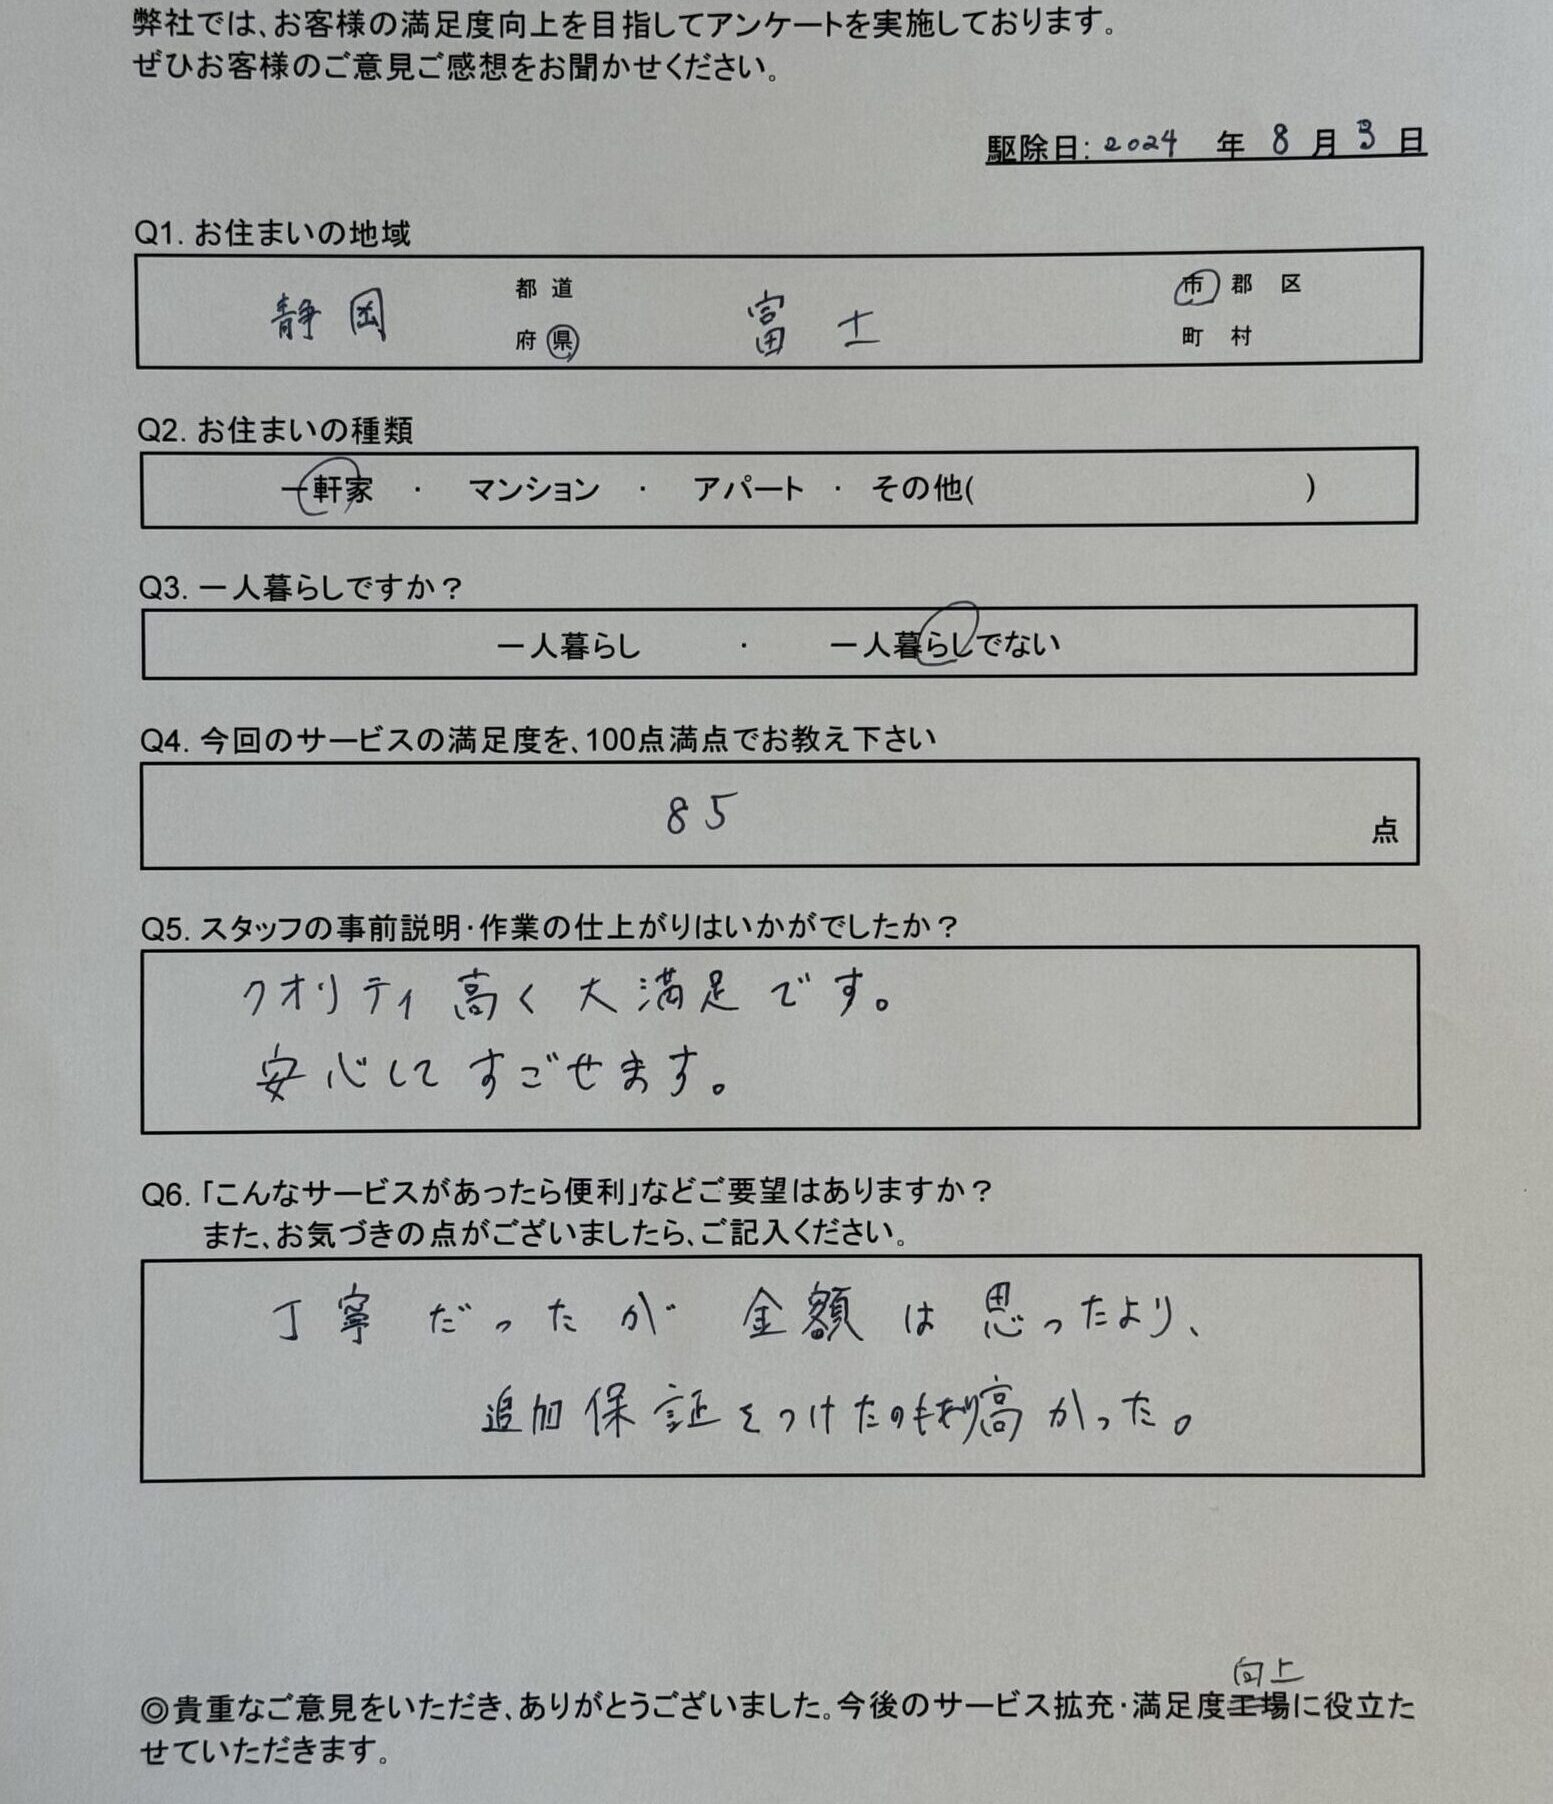 弊社では、お客様の満足度向上を目指してアンケートを実施しております。
ぜひお客様のご意見ご感想をお聞かせください。
駆除日: 2024 年 8 月 3 日
Q1. お住まいの地域
静岡 都 道 府 県 富士 市 郡 区 町 村
Q2. お住まいの種類
一軒家 ・ マンション ・ アパート ・ その他( )
Q3. 一人暮らしですか?
一人暮らし ・ 一人暮らしでない
Q4. 今回のサービスの満足度を、100点満点でお教え下さい
85 点
Q5. スタッフの事前説明・作業の仕上がりはいかがでしたか?
クオリティ高く大満足です。
安心してすごせます。
Q6. 「こんなサービスがあったら便利」などご要望はありますか?
また、お気づきの点がございましたら、ご記入ください。
丁寧だったが 金額は思ったより、
追加保証をつけたのも 高かった。
向上
◎貴重なご意見をいただき、ありがとうございました。今後のサービス拡充・満足度工場に役立た
せていただきます。